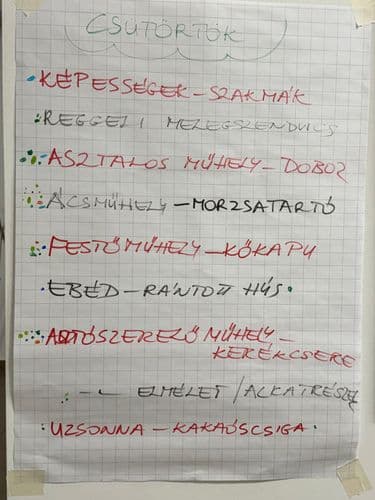 CSÜTÖRTÖK
KÉPESSÉGEK - SZAKMÁK
REGGELI MELEGSZENDVICS
ASZTALOS MŰHELY - DOBOZ
ÁCSMŰHELY - MORZSATARTÓ
FESTŐMŰHELY - KŐKAPU
EBÉD - RÁNTOTT HÚS
AUTÓSZERELŐ MŰHELY -
KERÉKCSERE
-"- ELMÉLET / ALKATRÉSZEK
UZSONNA - KAKAÓSCSIGA